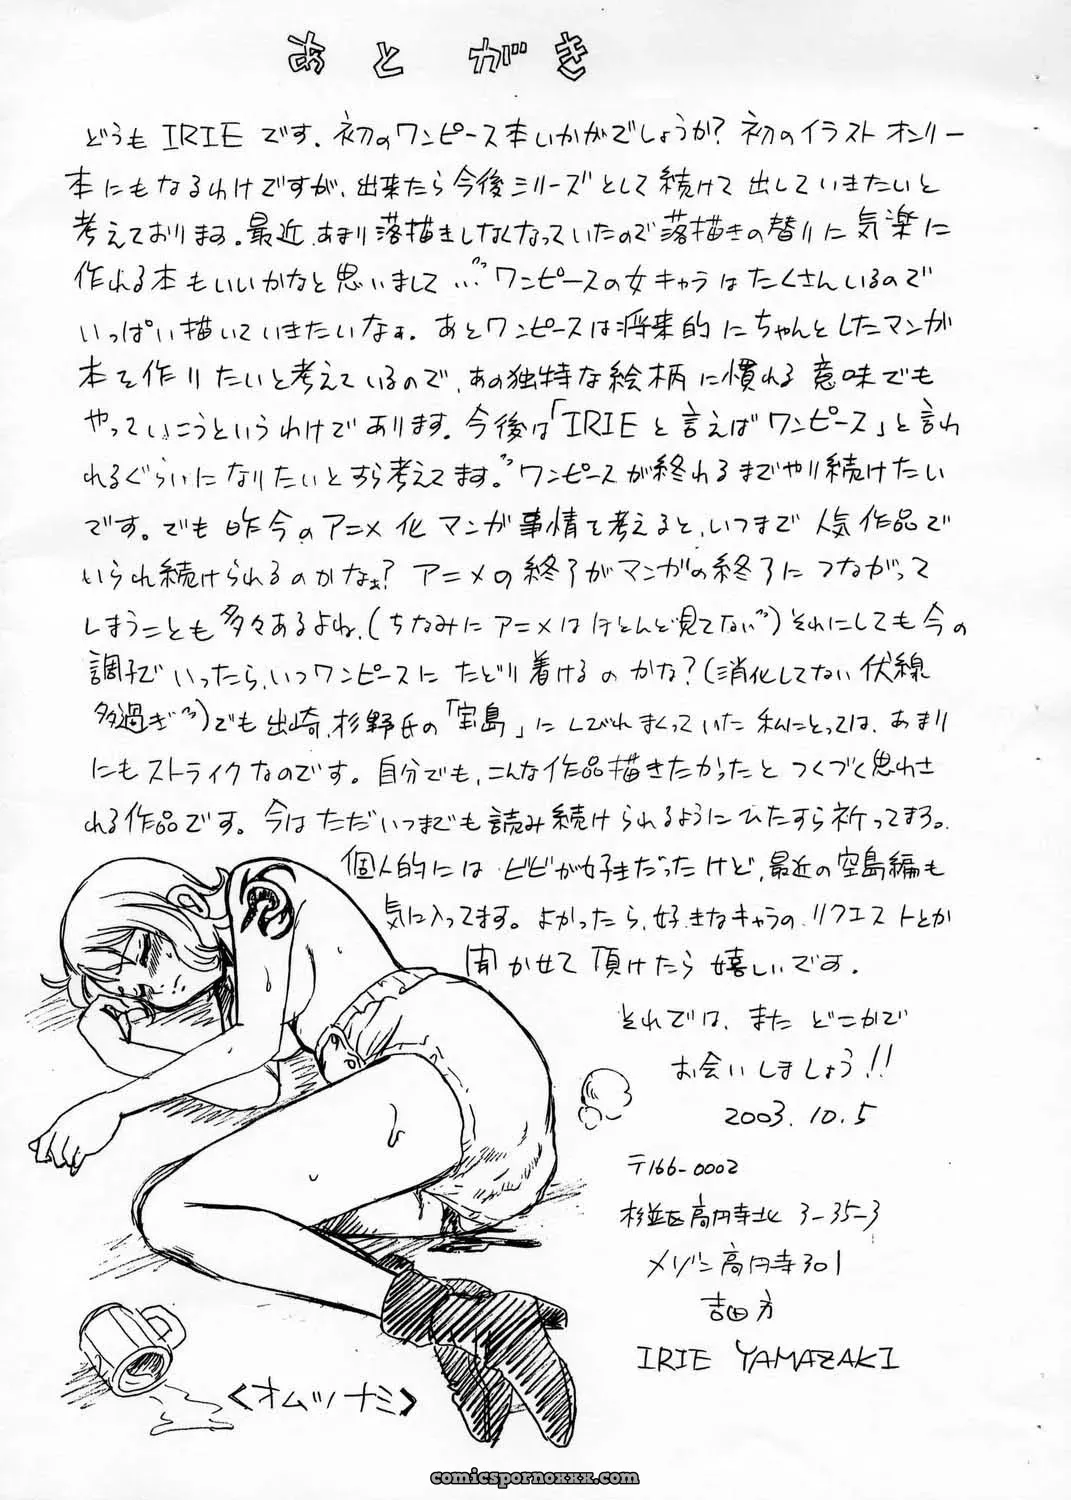 あとがき
どうもIRIEです。初のワンピース本いかがでしょうか?初のイラストオンリー
本にもなるわけですが、出来たら今後シリーズとして続けて出していきたいと
考えております。最近、あまり落描きしなくなっていたので落描きの替りに気楽に
作れる本もいいかなと思いまして…ワンピースの女キャラはたくさんいるので
いっぱい描いていきたいなぁ。あとワンピースは将来的にちゃんとしたマンガ
本を作りたいと考えているので、あの独特な絵柄に慣れる意味でも
やっていこうというわけであります。今後は「IRIEと言えばワンピース」と言わ
れるぐらいになりたいとすら考えてます。ワンピースが終わるまでやり続けたい
です。でも昨今のアニメ化マンガ事情を考えると、いつまで人気作品で
いられ続けられるのかなぁ?アニメの終了がマンガの終了につながって
しまうことも多々あるよね、(ちなみにアニメはほとんど見てない)それにしても今の
調子でいったら、いつワンピースにたどり着けるのかな?(消化してない伏線
多過ぎ)でも出崎、杉野氏の「宝島」にしびれまくっていた私にとっては、あまり
にもストライクなのです。自分でも、こんな作品描きたかったとつくづく思わさ
れる作品です。今はただいつまでも読み続けられるようにひたすら祈ってまる。
個人的にはビビが好きだったけど、最近の空島編も
気に入ってます。よかったら、好きなキャラのリクエストとか
聞かせて頂けたら嬉しいです。
それでは、またどこかで
お会いしましょう!!
2003.10.5
〒166-0002
杉並区高円寺北 3-35-3
メゾン高円寺301
吉田方
IRIE YAMAZAKI
<オムツナミ>
comicspornoxxx.com